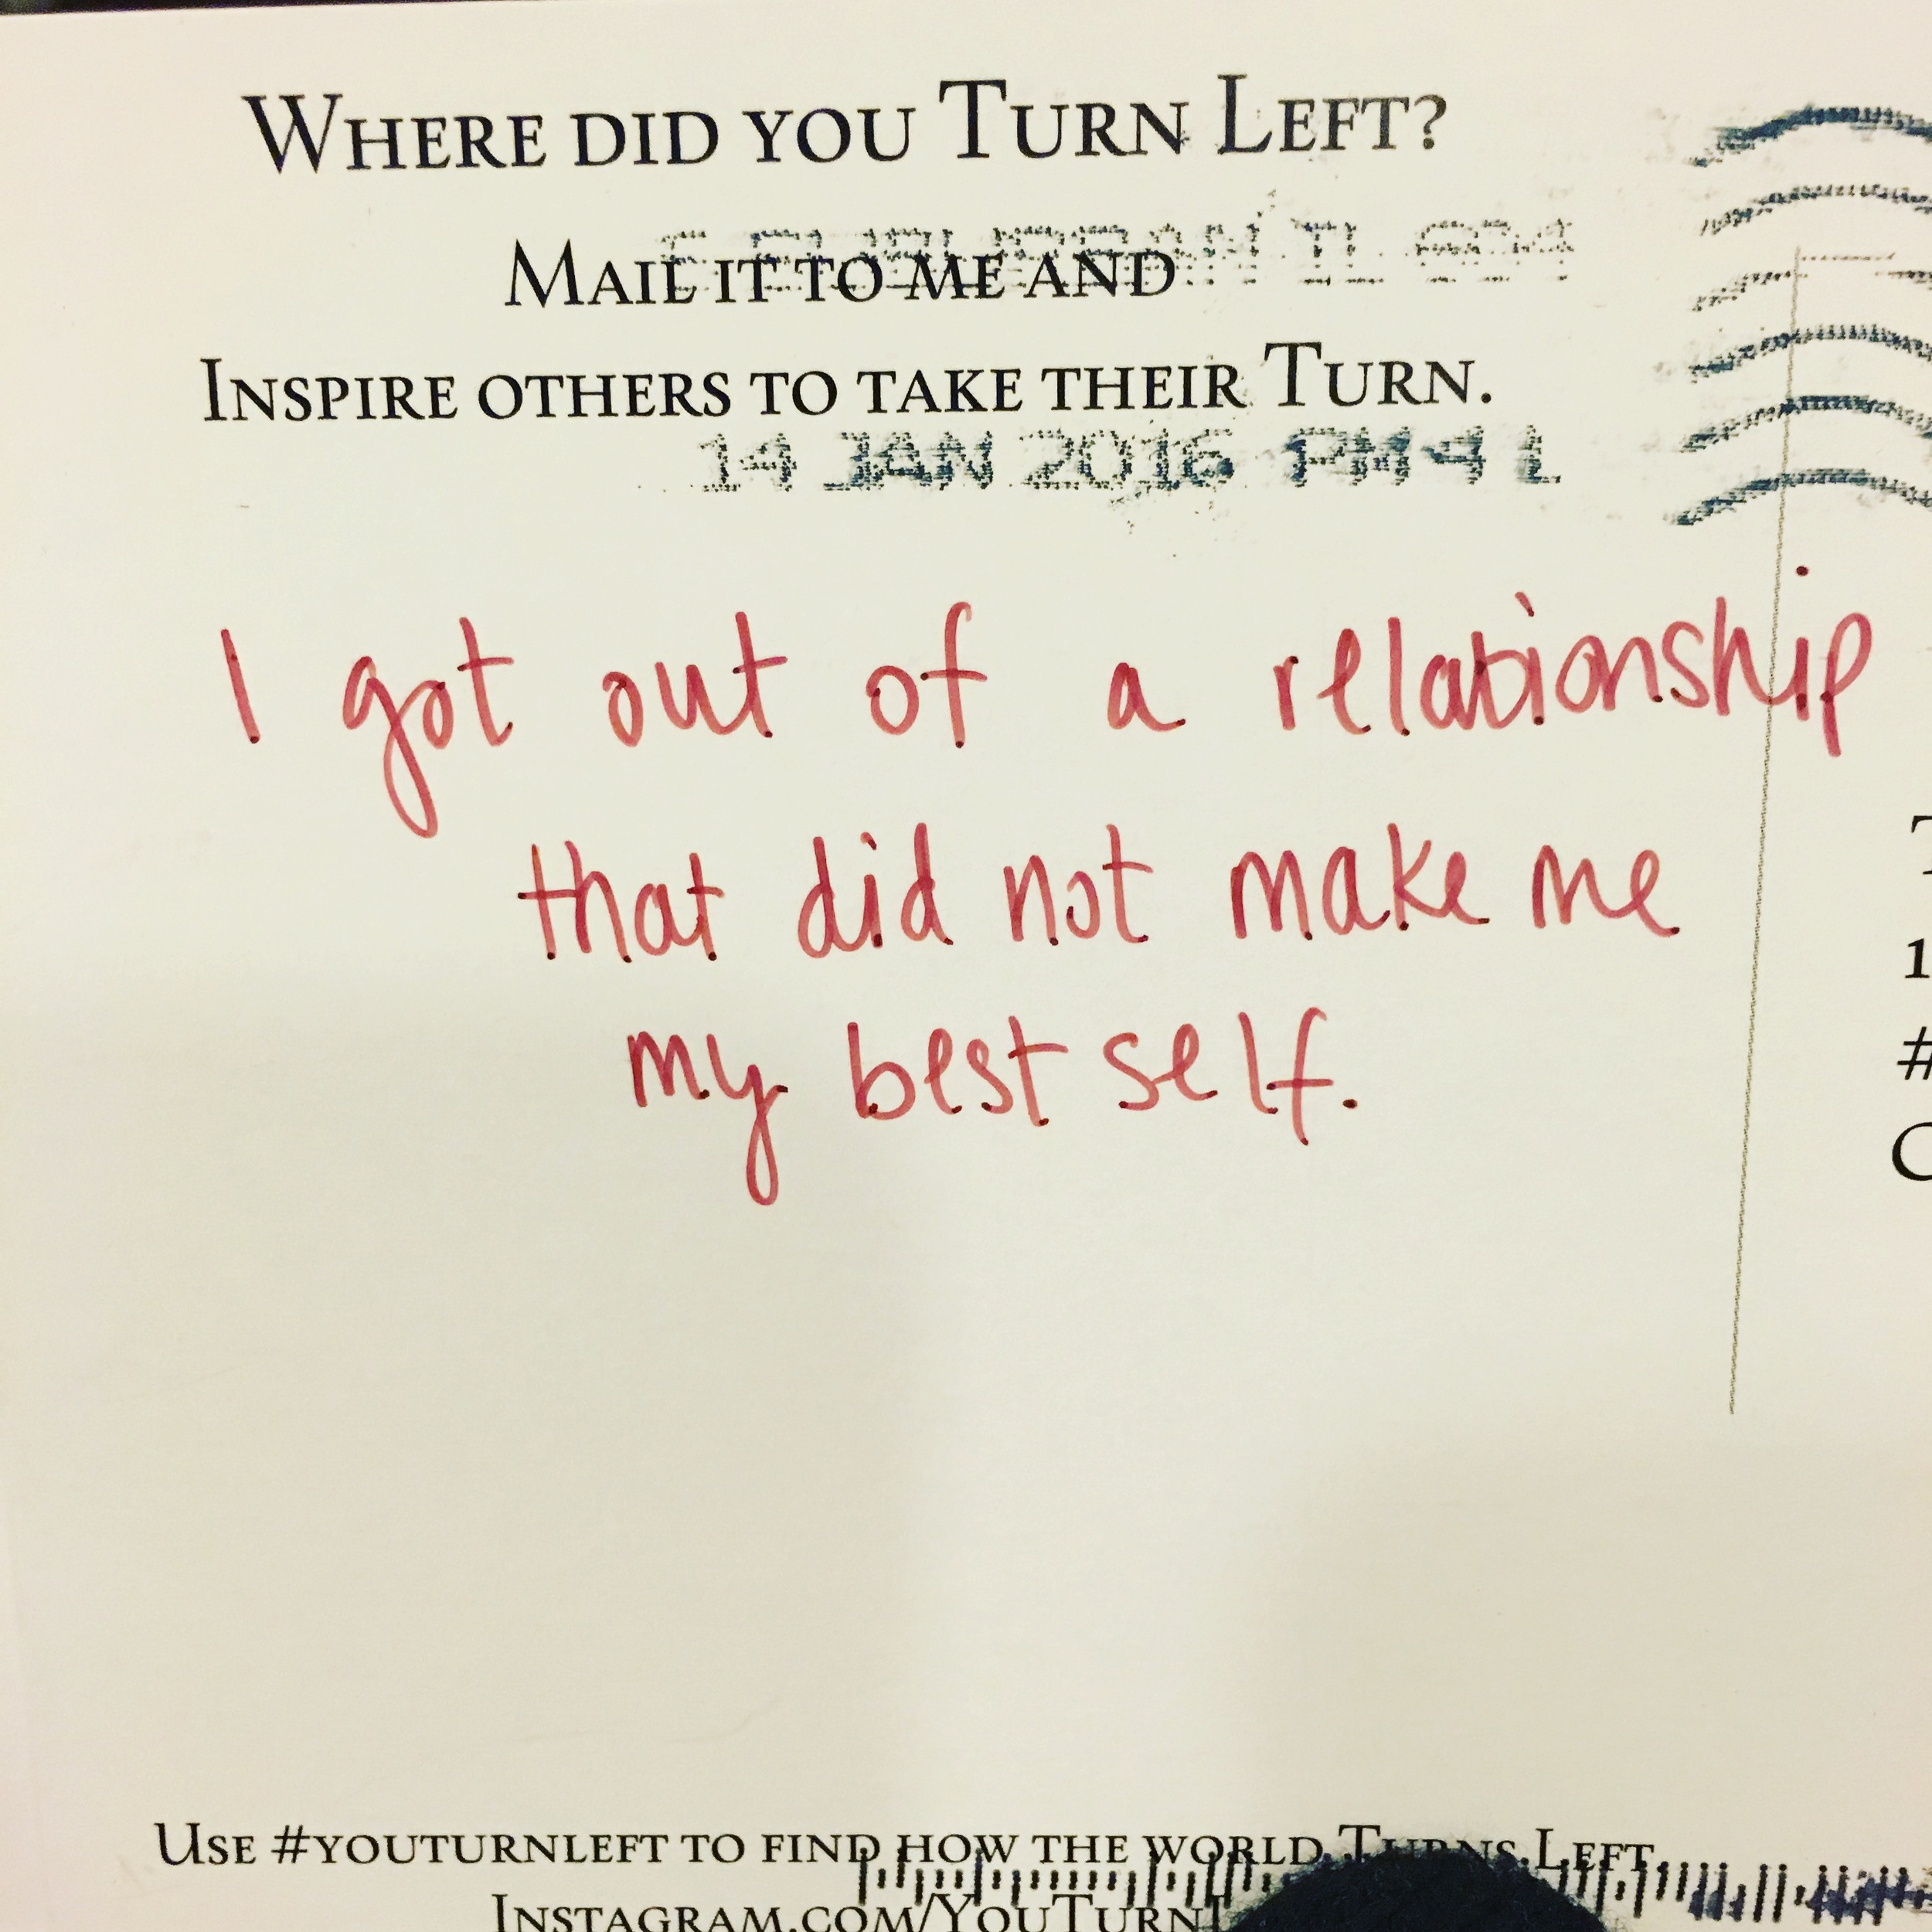 WHERE DID YOU TURN LEFT?
MAIL IT TO ME AND
INSPIRE OTHERS TO TAKE THEIR TURN.
14 JAN 2016 PM 4 L
I got out of a relationship
that did not make me
my best self.
USE #YOUTURNLEFT TO FIND HOW THE WORLD TURNS LEFT
INSTAGRAM.COM/YOUTURN
1
#